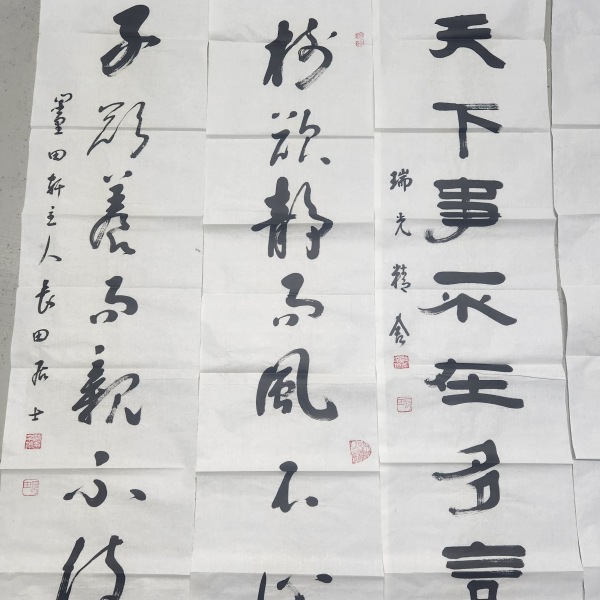 天下事不在多言
瑞光精舍
樹欲静而風不
子欲養而親不待
墨田軒主人 長田居士